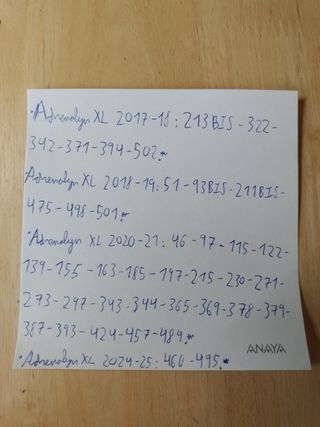 ·Adrenalyn XL 2017-18: 213BIS-322-
342-371-394-502.*
·Adrenalyn XL 2018-19: 51-93BIS-211BIS-
475-498-501.*
·Adrenalyn XL 2020-21: 46-97-115-122-
139-155-163-185-197-215-230-271-
273-297-343-344-365-369-378-379-
387-393-424-457-484.*
ANAYA
·Adrenalyn XL 2024-25: 460-495.*